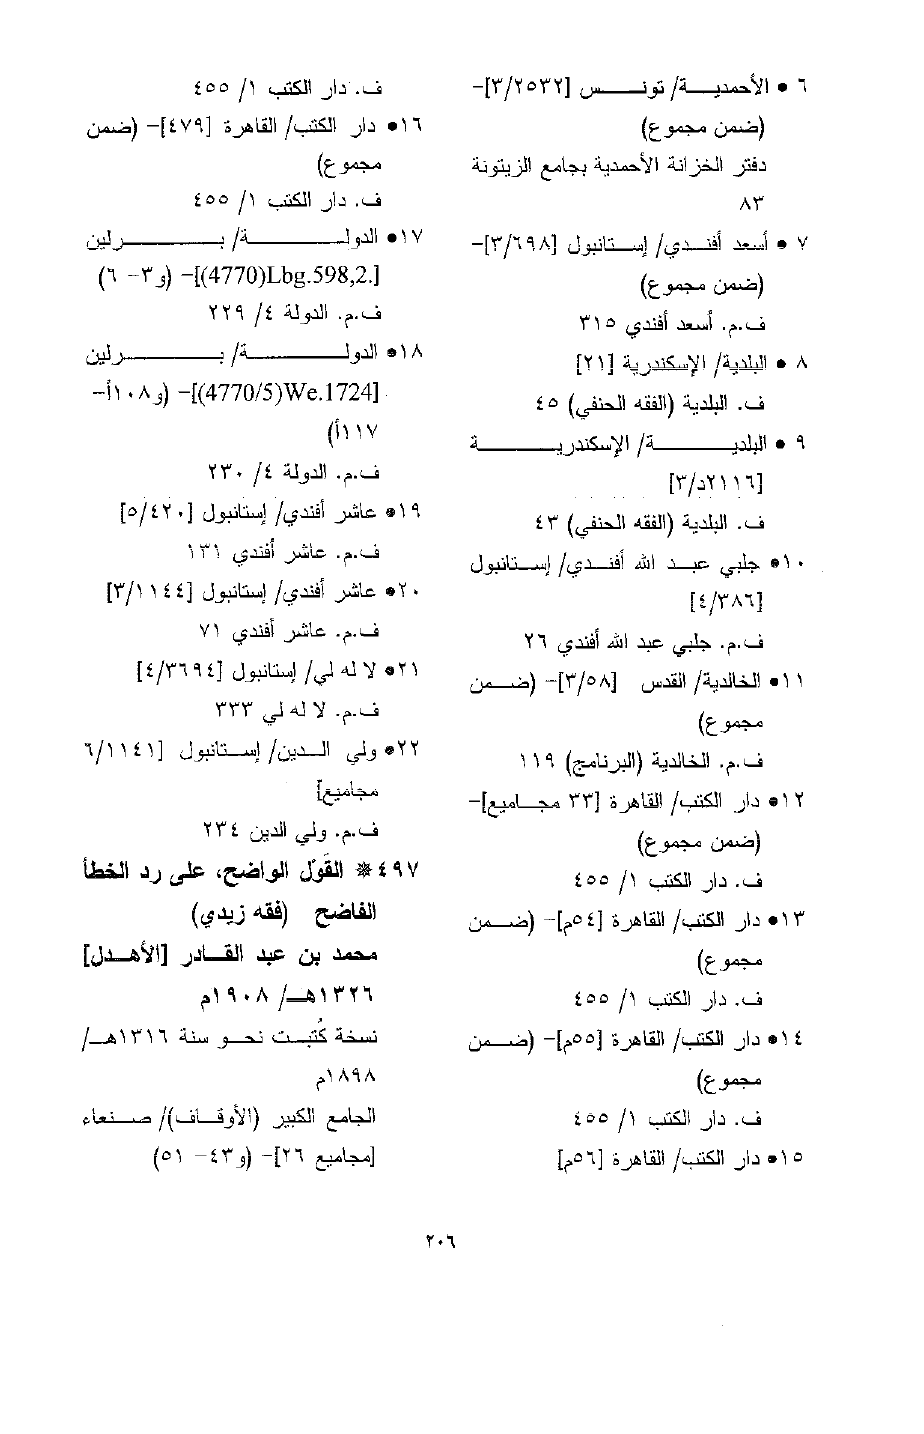 ٦ • الأحمدية/ تونس [٣/٢٥٣٢]-
(ضمن مجموع)
دفتر الخزانة الأحمدية بجامع الزيتونة
٨٣
٧ • أسعد أفندي/ إستانبول [٣/٦٩٨]-
(ضمن مجموع)
ف.م. أسعد أفندي ٣١٥
٨ • البلدية/ الإسكندرية [٢١]
ف. البلدية (الفقه الحنفي) ٤٥
٩ • البلدية/ الإسكندرية
[٢١١٦د/٣]
ف. البلدية (الفقه الحنفي) ٤٣
١٠• جلبي عبد الله أفندي/ إستانبول
[٤/٣٨٦]
ف.م. جلبي عبد الله أفندي ٢٦
١١• الخالدية/ القدس [٣/٥٨]- (ضمن
مجموع)
ف.م. الخالدية (البرنامج) ١١٩
١٢• دار الكتب/ القاهرة [٣٣ مجاميع]-
(ضمن مجموع)
ف. دار الكتب ١/ ٤٥٥
١٣• دار الكتب/ القاهرة [٥٤م]- (ضمن
مجموع)
ف. دار الكتب ١/ ٤٥٥
١٤• دار الكتب/ القاهرة [٥٥م]- (ضمن
مجموع)
ف. دار الكتب ١/ ٤٥٥
١٥• دار الكتب/ القاهرة [٥٦م]
ف. دار الكتب ١/ ٤٥٥
١٦• دار الكتب/ القاهرة [٤٧٩]- (ضمن
مجموع)
ف. دار الكتب ١/ ٤٥٥
١٧• الدولة/ برلين
[.Lbg.598,2(4770)]- (و٣- ٦)
ف.م. الدولة ٤/ ٢٢٩
١٨• الدولة/ برلين
[We.1724(4770/5)]- (و١٠٨أ-
١١٧أ)
ف.م. الدولة ٤/ ٢٣٠
١٩• عاشر أفندي/ إستانبول [٥/٤٢٠]
ف.م. عاشر أفندي ١٣١
٢٠• عاشر أفندي/ إستانبول [٣/١١٤٤]
ف.م. عاشر أفندي ٧١
٢١• لا له لي/ إستانبول [٤/٣٦٩٤]
ف.م. لا له لي ٣٣٣
٢٢• ولي الدين/ إستانبول [٦/١١٤١
مجاميع]
ف.م. ولي الدين ٢٣٤
٤٩٧* القَوْل الواضح، على رد الخطأ
الفاضح (فقه زيدي)
محمد بن عبد القادر [الأهدل]
١٣٢٦هـ/ ١٩٠٨م
نسخة كُتبت نحو سنة ١٣١٦هـ/
١٨٩٨م
الجامع الكبير (الأوقاف)/ صنعاء
[مجاميع ٢٦]- (و٤٣- ٥١)
٢٠٦